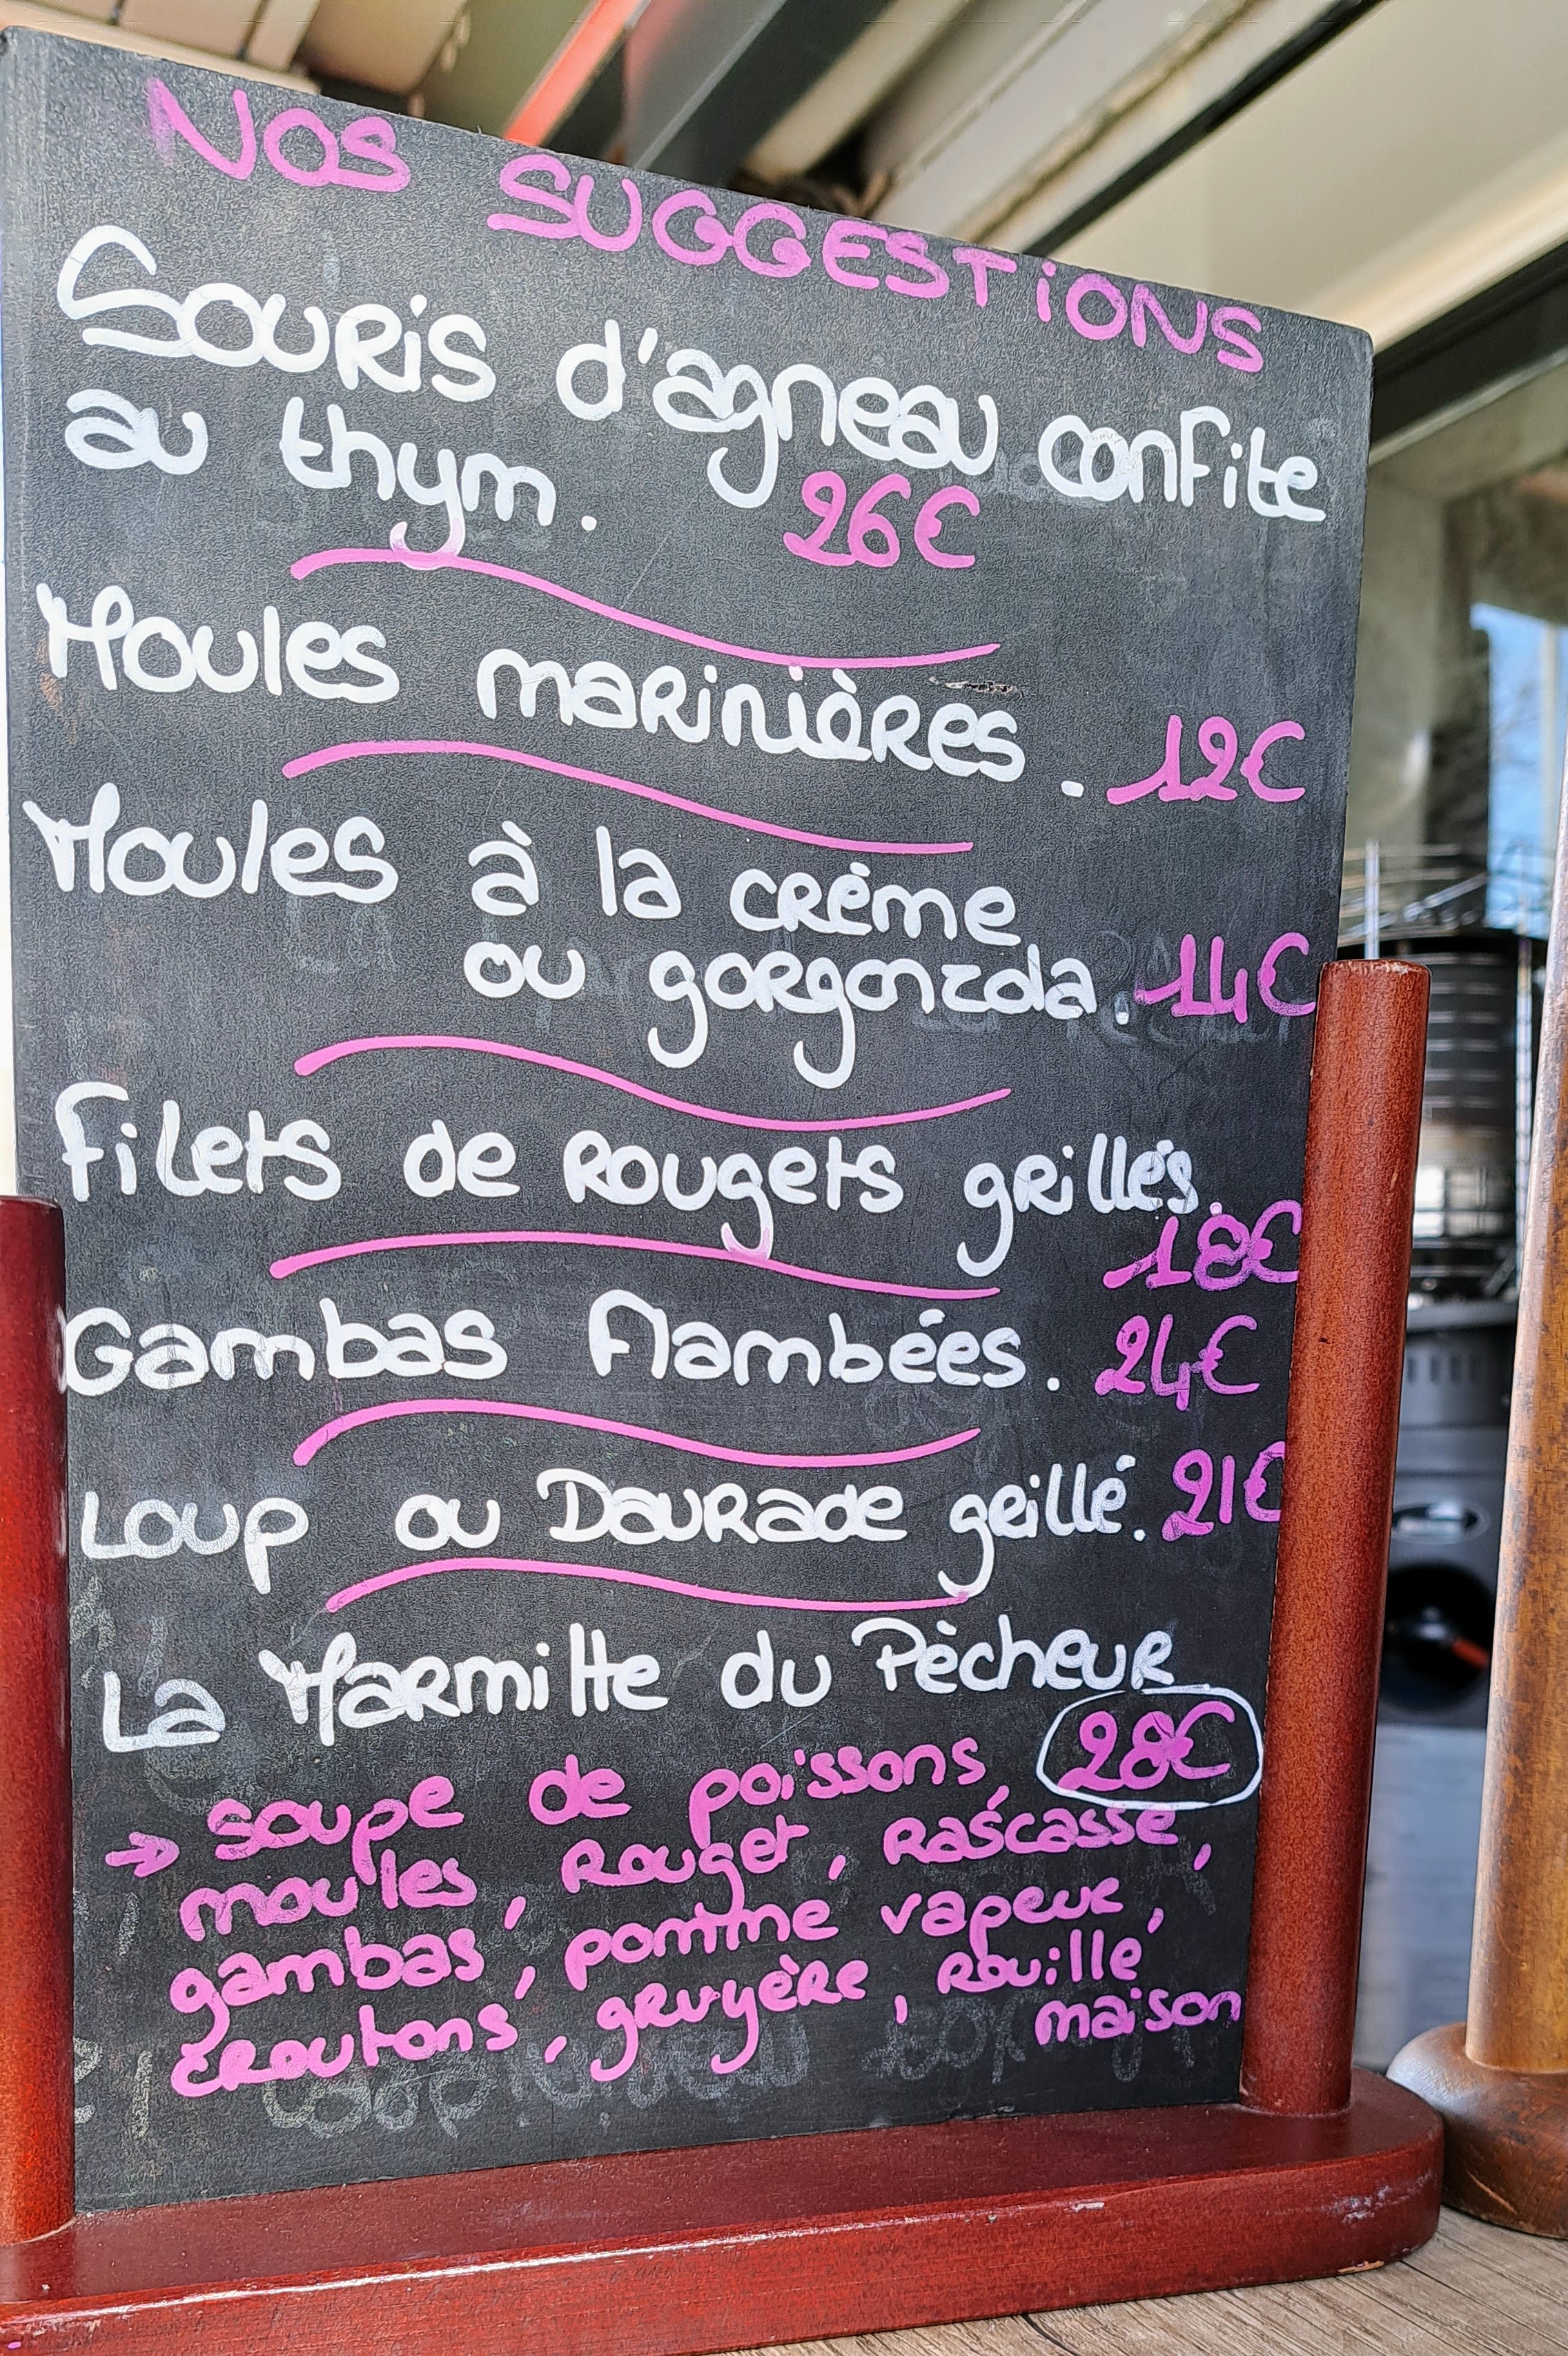 NOS SUGGESTIONS
Souris d'agneau confite
au thym. 26€
Moules marinières. 12€
Moules à la crème
ou gorgonzola. 14€
Filets de rougets grillés.
18€
Gambas flambées. 24€
Loup ou Daurade grillé. 21€
La Marmitte du Pècheur
28€
→ soupe de poissons,
moules, rouget, rascasse,
gambas, pomme vapeur,
croutons, gruyère, rouille
maison